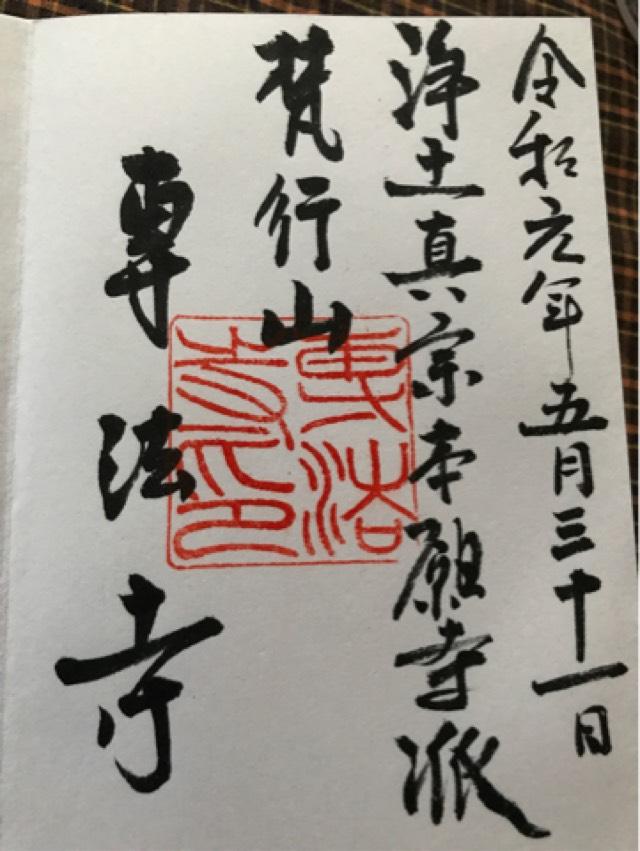 令和元年五月三十一日
浄土真宗本願寺派
梵行山
専法寺
専法寺印